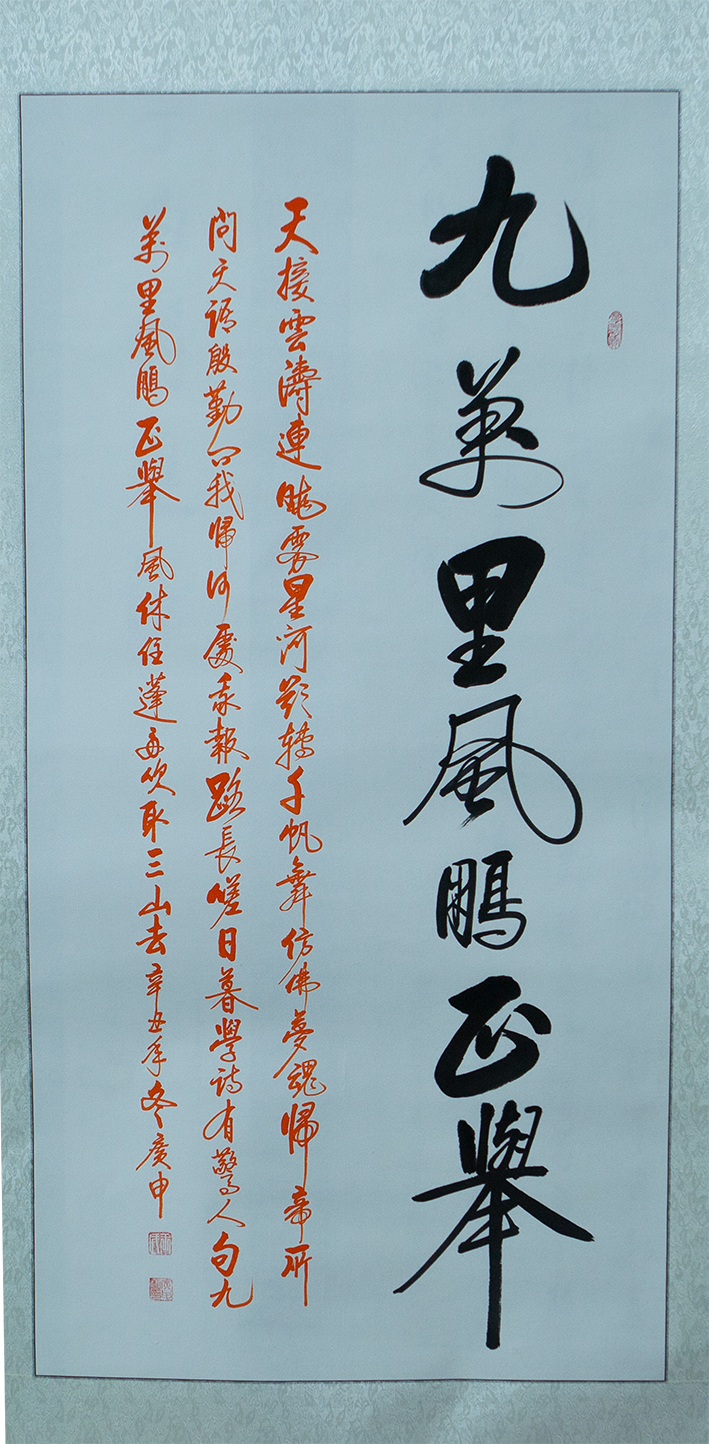 九萬里風鵬正舉
天接雲濤連曉霧星河欲轉千帆舞仿佛夢魂歸帝所
聞天語殷勤問我歸何處我報路長嗟日暮學詩有驚人句九
萬里風鵬正舉風休住蓬舟吹取三山去辛丑年冬廣申